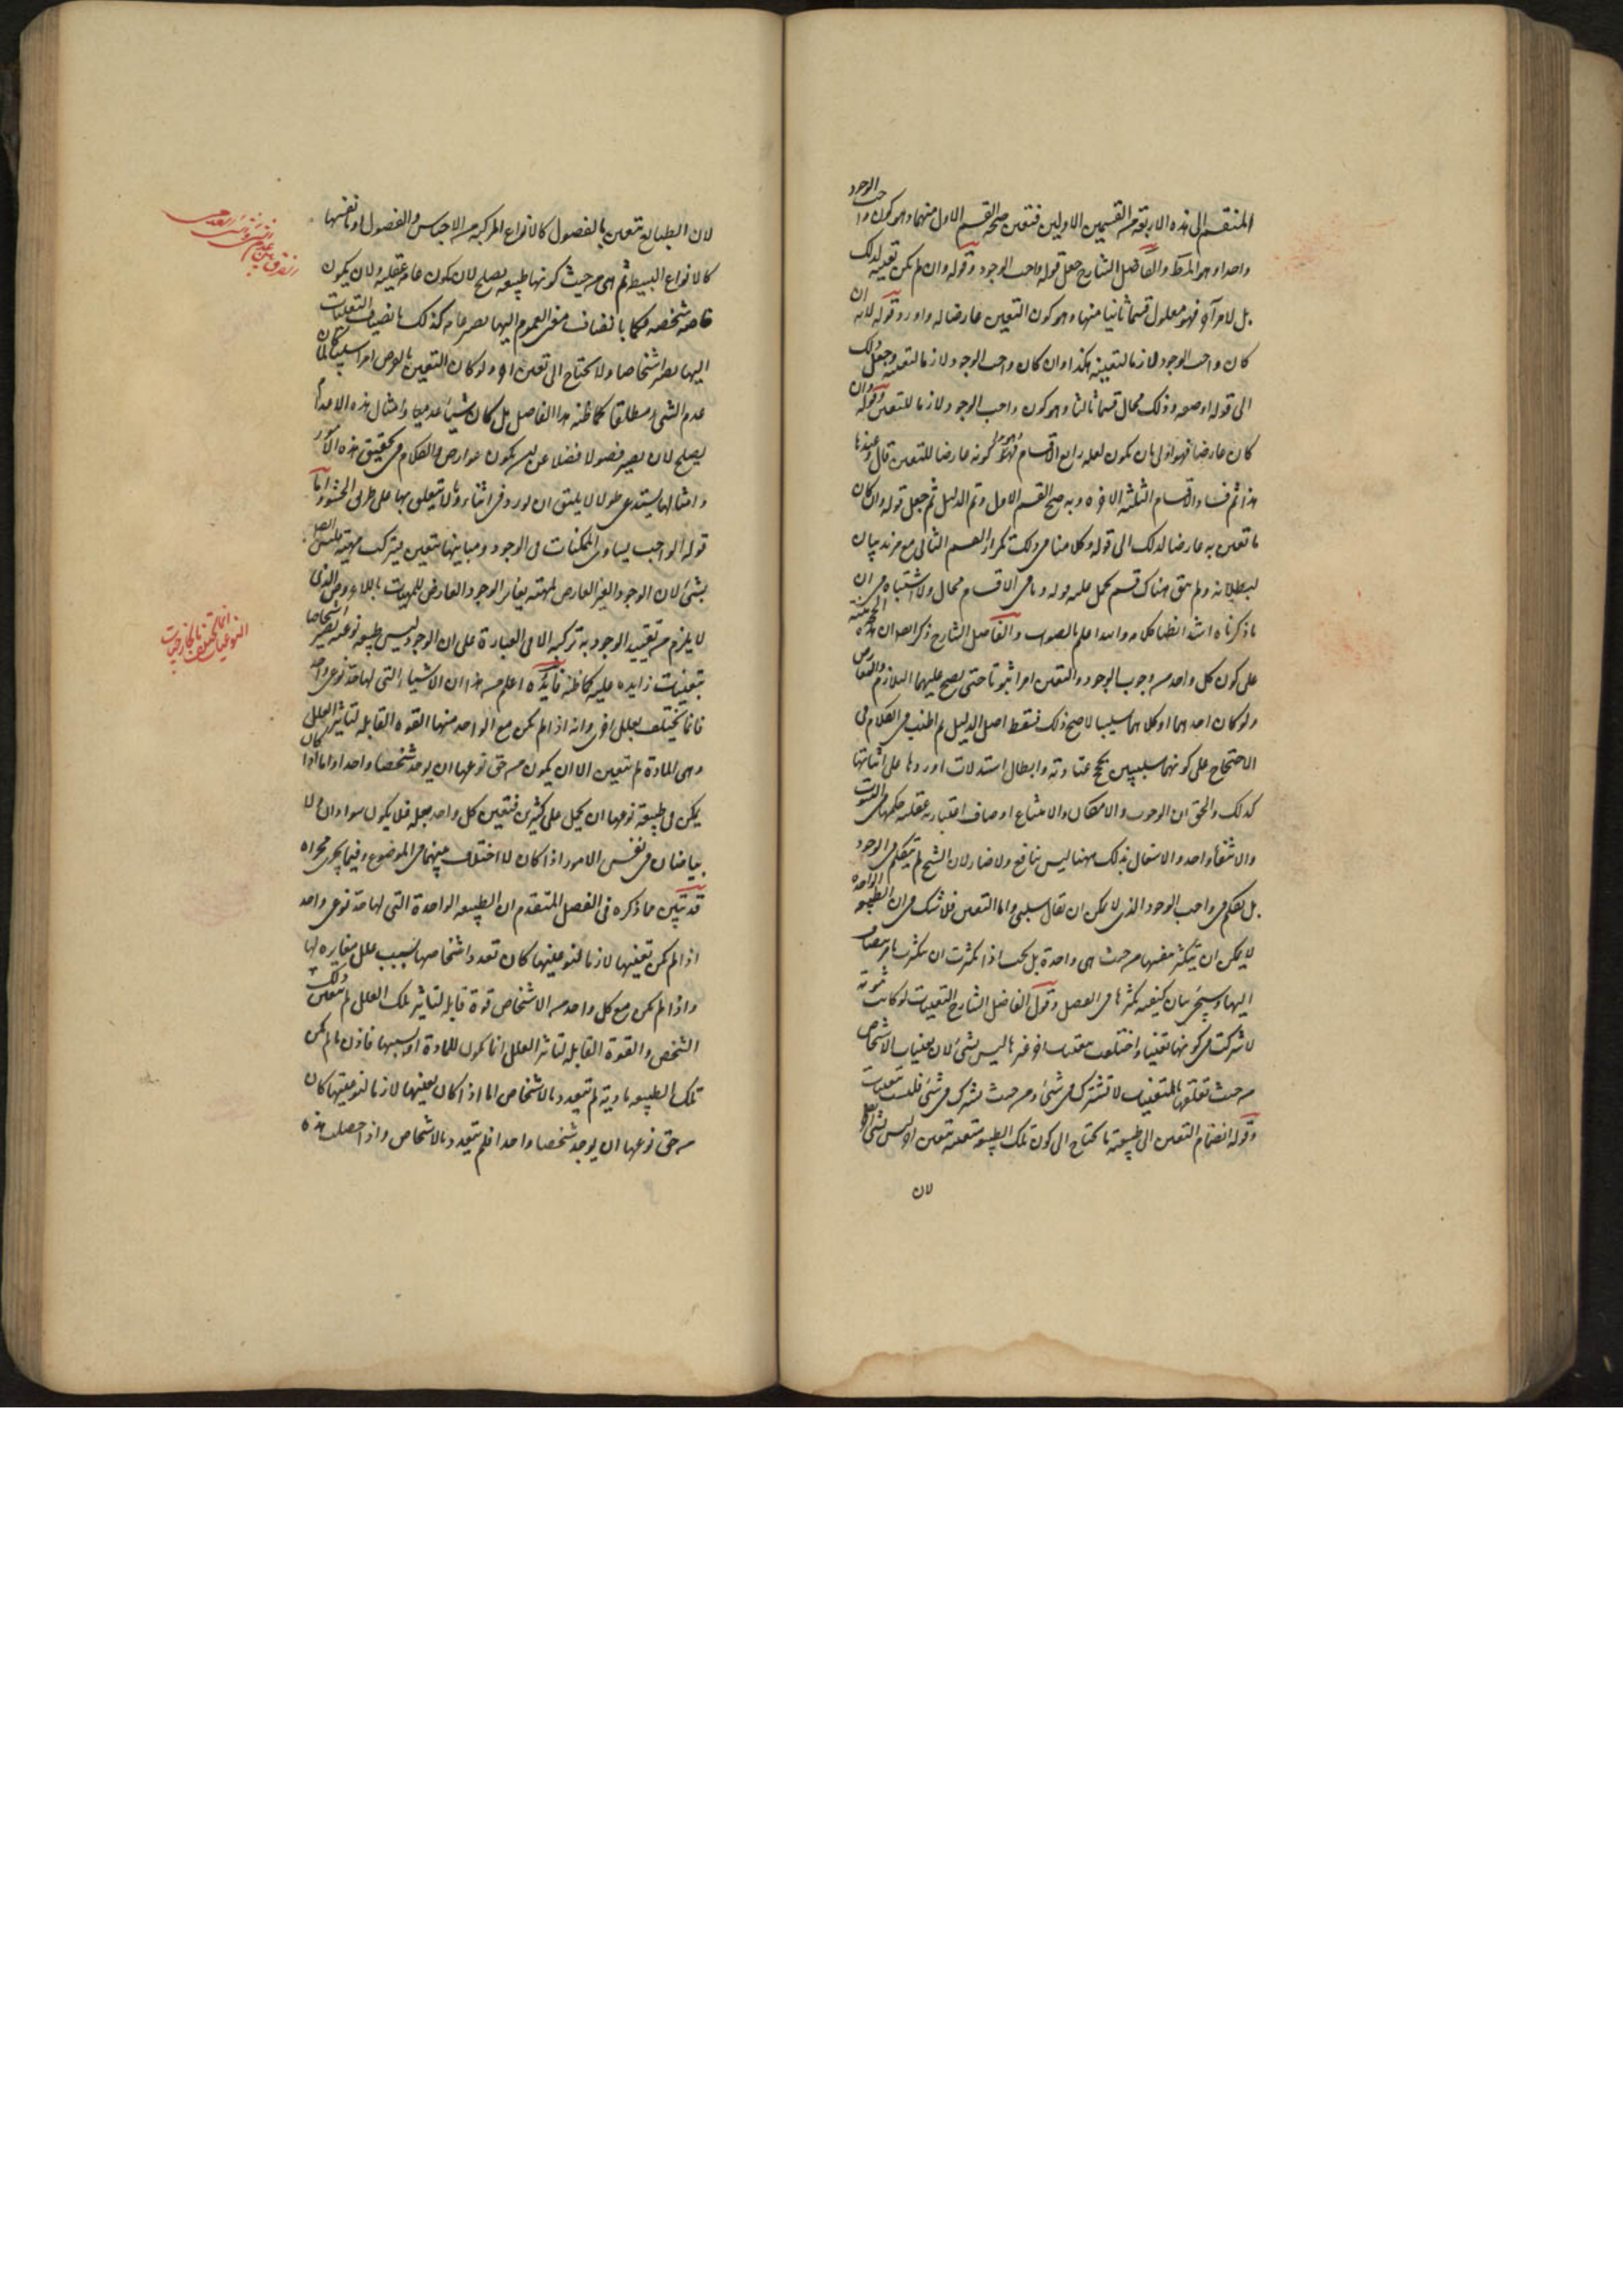 المنقسم الى هذه الاربعة من القسمين الاولين فتعين صحة القسم الاول منهما وهو كون واجب الوجود
واحدا وهو المراد والفاضل الشارح جعل قوله واجب الوجود وقوله وان لم يكن تعينه لذلك
بل لامر آخر فهو معلول قسما ثانيا منها وهو كون التعين عارضا له واورد قوله لانه ان
كان واجب الوجود لازما لتعينه هكذا وان كان واجب الوجود لازما لتعينه وجعل ذلك
الى قوله او صفة وذلك محال قسما ثالثا وهو كون واجب الوجود لازما للتعين وقوله وان
كان عارضا فهو اولى بان يكون لعلة رابع الاقسام وهو كونه عارضا للتعين قال وعند
هذا تم فساد الاقسام الثلثة الاخيرة وبه صح القسم الاول وتم الدليل ثم جعل قوله وان كان
ما تعين به عارضا لذلك الى قوله وكلامنا في ذلك تكرار القسم الثاني مع مزيد بيان
لبطلانه ولم يبق هناك قسم يحمل عليه قوله وباقي الاقسام محال ولا اشتباه في ان
ما ذكرناه اشد انطباقا والله اعلم بالصواب والفاضل الشارح ذكر ان هذه الحجة مبنية
على كون كل واحد من وجوب الوجود والتعين امرا ثبوتيا حتى يصح عليهما التلازم والتعارض
ولو كان احدهما او كلاهما سلبيا لا صح ذلك فسقط اصل الدليل ثم اطنب في الكلام في
الاحتجاج على كونهما سلبيين بحجج عنادية وابطال استدلالات اوردها على اثباتها
كذلك والحق ان الوجوب والامكان والامتناع اوصاف اعتبارية عقلية حكمها في الثبوت
والانتفاء واحد والاشتغال بذلك ههنا ليس بنافع ولا ضار لان الشيخ لم يتكلم في الوجوب
بل تكلم في واجب الوجود الذي لا يمكن ان يقال سلبي واما التعين فلا شك في ان الطبيعة الواحدة
لا يمكن ان يتكثر بنفسها من حيث هي واحدة بل يجب اذا تكثرت ان تتكثر بامر ينضاف
اليها وسيجيء بيان كيفية تكثرها في الفصل وقول الفاضل الشارح التعينات لو كانت ثبوتية
لاشتركت في كونها تعينا واختلفت بتعينات اخر غيرها ليس بشيء لان تعينات الاشخاص
من حيث تعلقها بالمتعينات لا تشترك في شيء ومن حيث تشترك في شيء فليست بتعينات
وقوله انضمام التعين الى طبيعة ما يحتاج الى كون تلك الطبيعة متعينة بتعين اخر ليس بشيء
لان
لان الطبايع تتعين بالفصول كالانواع المركبة من الاجناس والفصول او بانفسها
كالانواع البسيطة ثم هي من حيث كونها طبيعة يصلح لان تكون عامة عقلية ولان يكون
خاصة شخصية فكما بانضياف معنى العموم اليها يصير عامة كذلك بانضياف التعينات
اليها يصير اشخاصا ولا يحتاج الى تعين اخر ولو كان التعين بالعرض امرا سلبيا لما كان
عدم الشيء مطلقا كما ظنه هذا الفاضل بل كان شيئا عدميا وامثال هذه الاعدام
يصلح لان يصير فصولا فضلا عن ان يكون عوارض والكلام في تحقيق هذه الامور
وامثالها يستدعي طولا لا يليق ان نورده في اثناء ما لا يتعلق بها على طريق الحشو واما
قوله الواجب يساوي الممكنات في الوجود ويباينها بتعين فيتركب مهيته فليس ايضا
بشيء لان الوجود الغير العارض لمهية يغاير الوجود العارض للمهيات باللاعروض الذي
لا يلزم من تقييد الوجود به تركبه الا في العبارة على ان الوجود ليس طبيعة نوعية يصير اشخاصا
بتعينات زايدة عليه كما ظنه فائدة اعلم من هذا ان الاشياء التي لها حد نوعي واحد
فانما تختلف بعلل اخرى وانه اذا لم يكن مع الواحد منها القوة القابلة لتاثير العلل
وهي المادة لم يتعين الا ان يكون من حق نوعها ان يوجد شخصا واحدا واما اذا كان
يمكن في طبيعة نوعها ان يحمل على كثيرين فتعين كل واحد بعلة فلا يكون سوادان ولا
بياضان في نفس الامور اذا كان لا اختلاف بينهما في الموضوع وفيما يجري مجراه
قد تبين مما ذكره في الفصل المتقدم ان الطبيعة الواحدة التي لها حد نوعي واحد
اذا لم يكن تعينها لازما لنوعيتها كان تعدد اشخاصها بسبب علل مغايرة لها
واذا لم يكن مع كل واحد من الاشخاص قوة قابلة لتاثير تلك العلل لم يتعين ذلك
الشخص والقوة القابلة لتاثير العلل انما يكون للمادة او بسببها فاذن ما لم يكن
تلك الطبيعة مادية لم تتعدد بالاشخاص اما اذا كان تعينها لازما لنوعيتها كان
من حق نوعها ان يوجد شخصا واحدا فلم يتعدد بالاشخاص واذا حصلت هذه